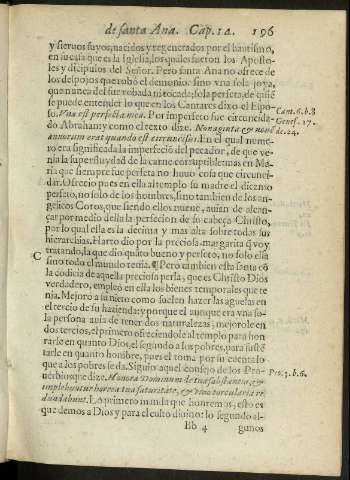 de santa Ana. Cap. 12. 196
y sieruos suyos, nacidos y regenerados por el bautismo,
en su casa que es la Iglesia, los quales fueron los Aposto-
les y dicipulos del Señor. Pero santa Ana no ofrece de
los despojos que robó el demonio, sino vna sola joya,
que nunca del fue robada ni tocada; sola perfeta, de quiẽ
se puede entender lo que en los Cantares dixo el Espo-
so. Vna est perfecta mea. Por imperfeto fue circuncida-
Cant. 6. b. 8
Genes. 17.
do Abraham y como el texto dize. Nonaginta & nouẽ
de. 24.
annorum erat quando est circuncisus. En el qual nume-
ro era significada la imperfeció del pecador, de que ve-
nia la superfluydad de la carne corruptible: mas en Ma-
ria que siempre fue perfeta no huuo cosa que circunci-
dar. Ofrecio pues en ella al templo su madre el diezmo
perfeto, no solo de los hombres, sino tambien de los an-
gelicos Coros, que siendo ellos nueue, auian de alcan-
çar por medio della la perfecion de su cabeça Christo,
por lo qual ella es la dezima y mas alta sobre todas sus
hierarchias. Harto dio por la preciosa margarita q̃ voy
tratando, la que dio quito bueno y perfeto, no solo ella
sino todo el mundo tenia. ¶ Pero tambien esta santa cõ
C
la codicia de aquella preciosa perla, que es Christo Dios
verdadero, empleó en ella los bienes temporales que te
nia. Mejoro a su nieto como suelen hazer las aguelas en
el tercio de su hazienda: y porque el aunque era vna so-
la persona auia de tener dos naturalezas, mejorole en
dos tercios, el primero ofreciendole al templo para hon
rarle en quanto Dios, el segundo a los pobres, para sustẽ
tarle en quanto hombre, pues el toma por su cuenta lo
que a los pobres se da. Siguio aquel consejo de los Pro-
Pro. 3. b. 6.
uerbios que dize. Honora Dominum de tua substantia, &
implebuntur horrea tua saturitate, & vino torcularia re
dundabunt. Lo primero manda que honremos, esto es
que demos a Dios y para el culto diuino: lo segundo al-
Bb 4 gunos